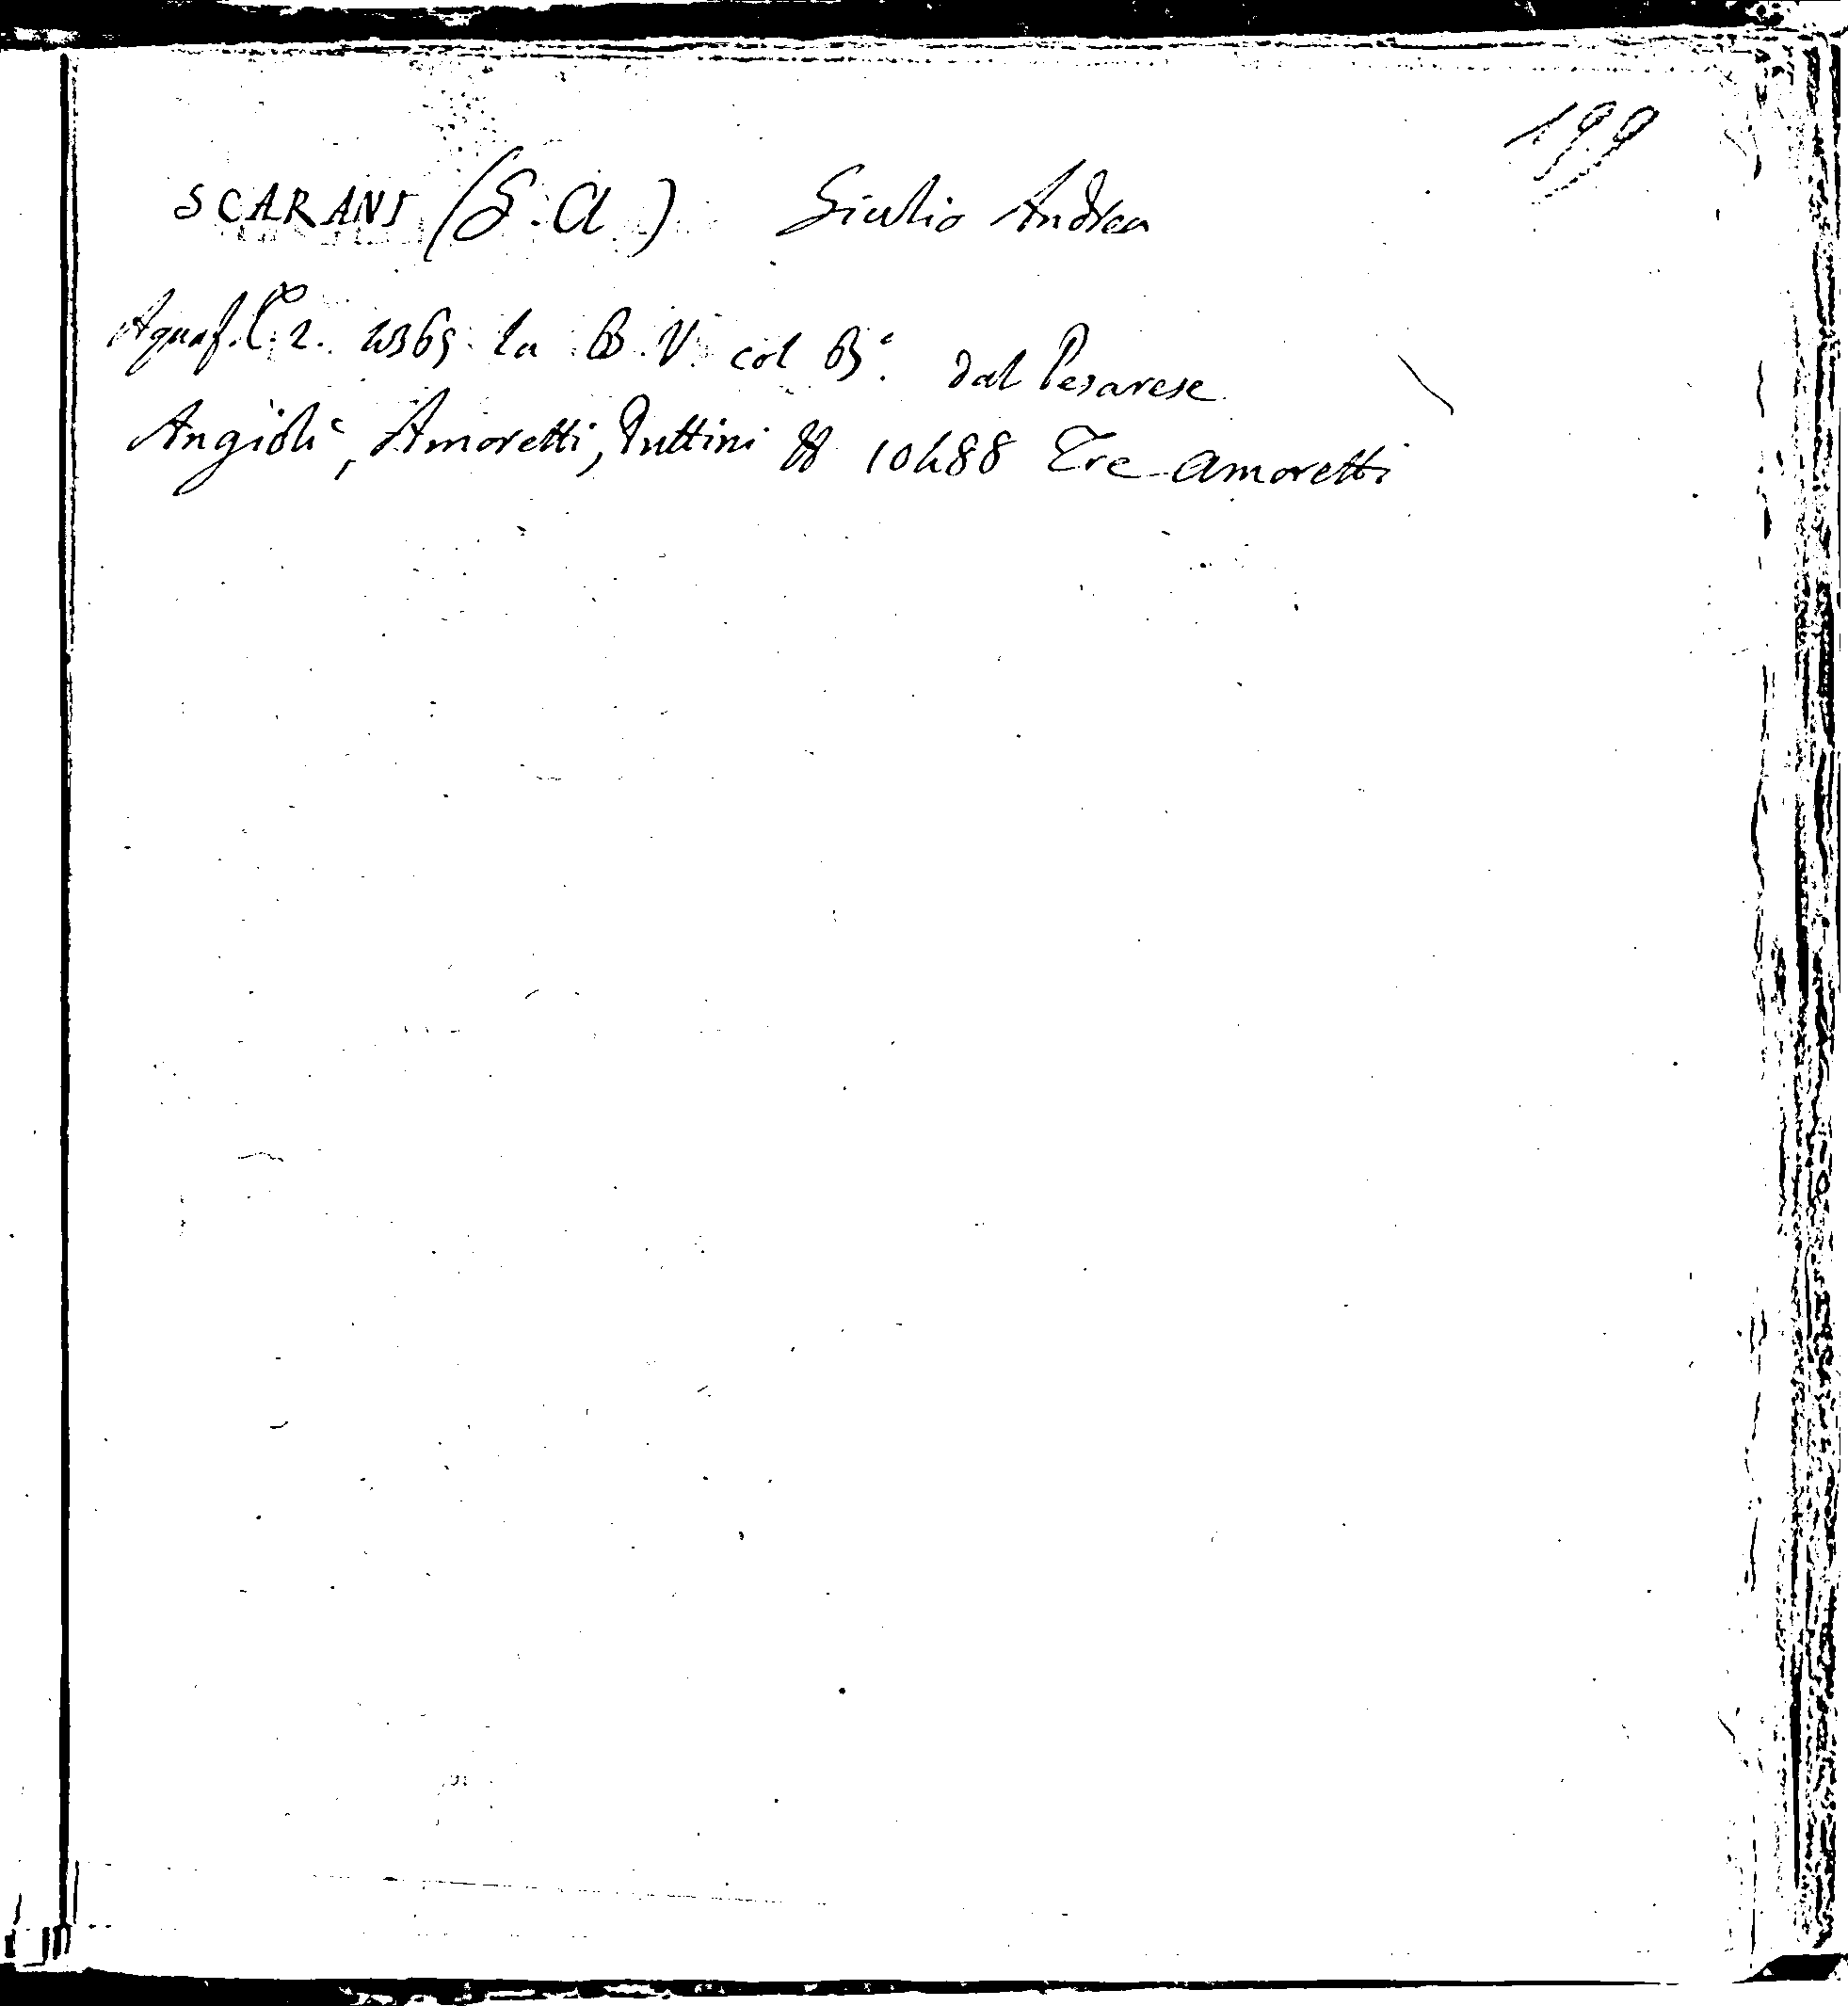 199
SCARANI (G. A.) Giulio Andrea
Aquaf. C. 2. la B. V. col B.º dal Pesarese
Angioli, Amoretti, Puttini 10488 Tre amoretti